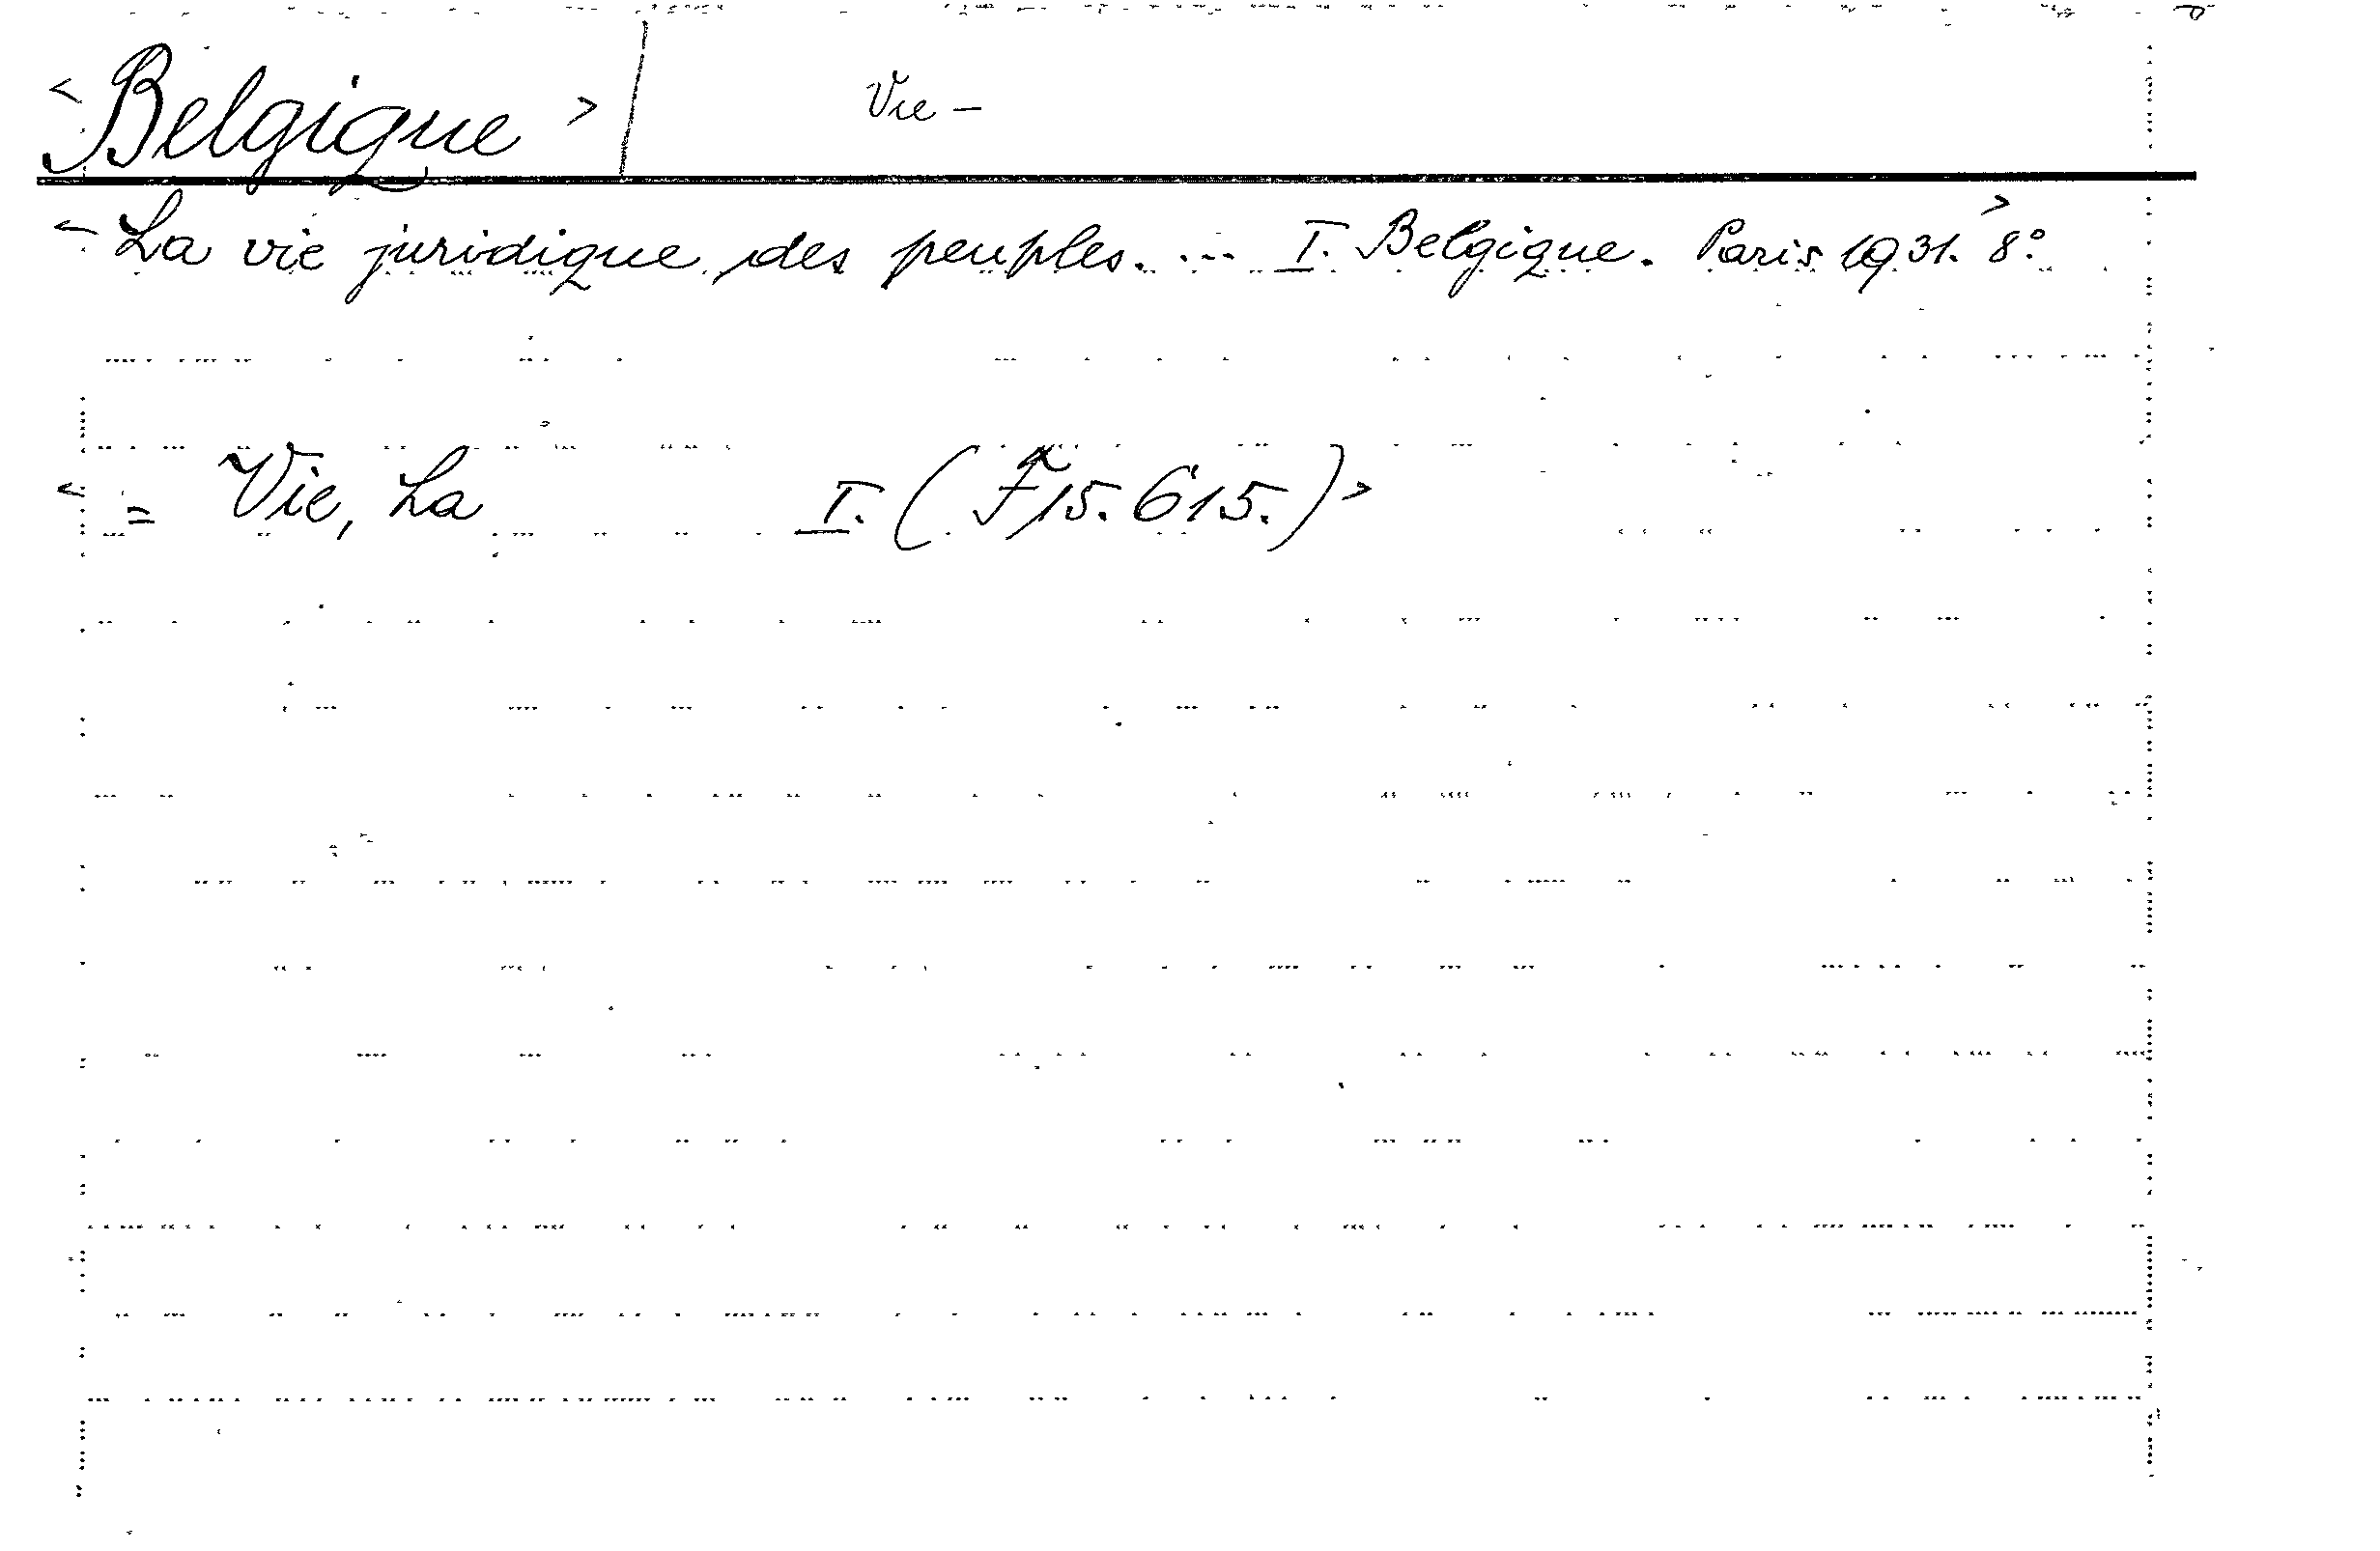 < Belgique > Vie –
< La vie juridique des peuples. ... I. Belgique. Paris 1931. 8°. >
< = Vie, La I. (F 15.615.) >